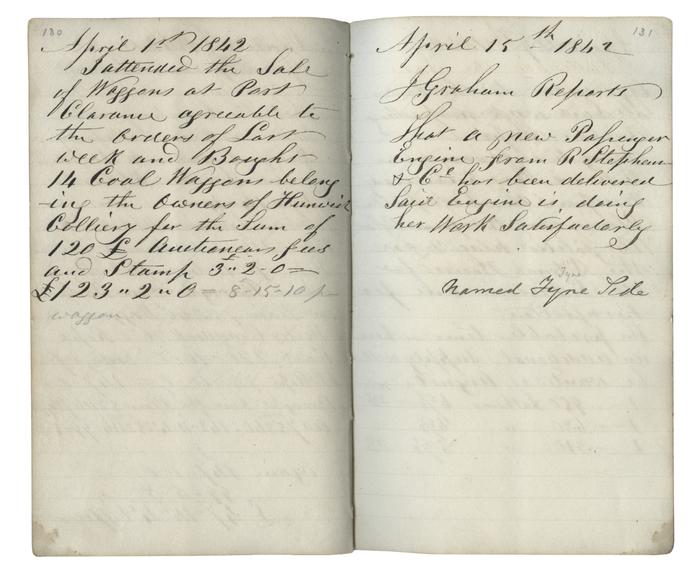 130
April 1st 1842
I attended the Sale
of Waggons at Port
Clarance agreeable to
the Orders of Last
week and Bought
14 Coal Waggons belong
-ing the Owners of Hunwick
Colliery for the Sum of
120 £ Auctionears fees
and Stamp 3£"2-0=
£123"2"0= 8-15-10 p
waggon
131
April 15th 1842
J Graham Reports
that a new Passenger
Engine from R Stephen
& Co has been delivered
Said Engine is doing
her Work Satisfacterly
Tyne
named Tyne Side